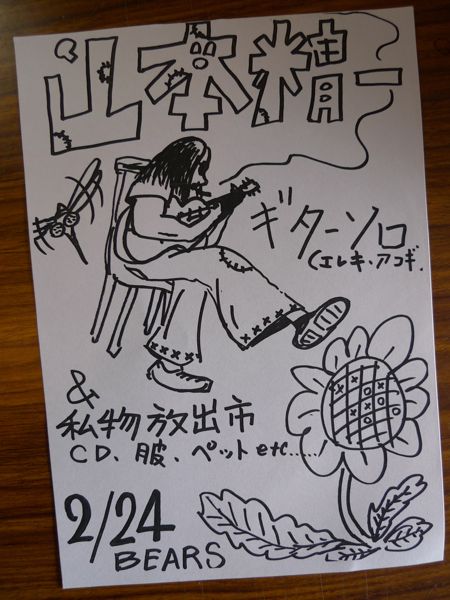 山本精一
ギターソロ
(エレキ、アコギ、
&
私物放出市
CD、服、ペット etc.....
2/24
BEARS